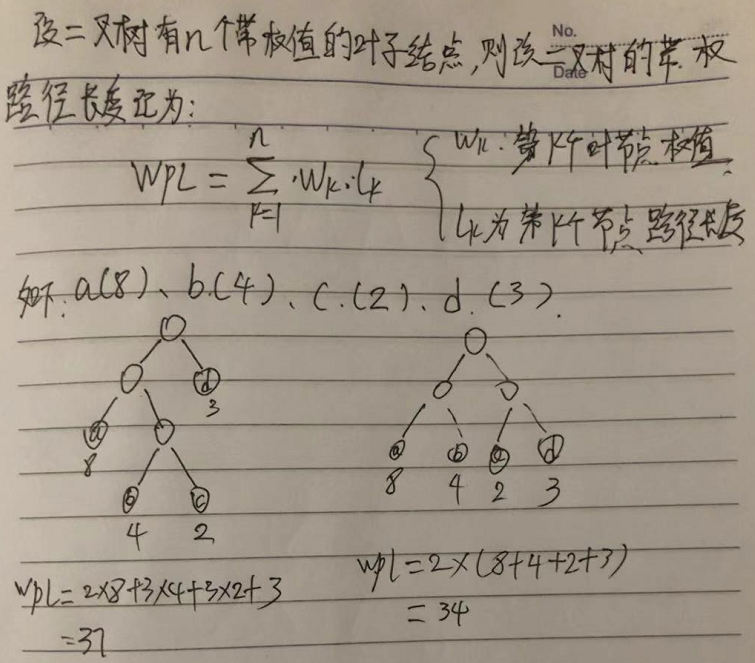 设二叉树有n个带权值的叶子结点,则该二叉村的带权
No.
Date
路径长度记为:
WPL = n∑k=1 ·Wk·Lk { Wk·第k个叶节点权值
Lk为第k个节点路径长度
如下: a(8)、b.(4)、c.(2)、d.(3).
d
3
a
8
b c
4 2
a b c d
8 4 2 3
wpl=2×8+3×4+3×2+3
=37
wpl=2×(8+4+2+3)
= 34